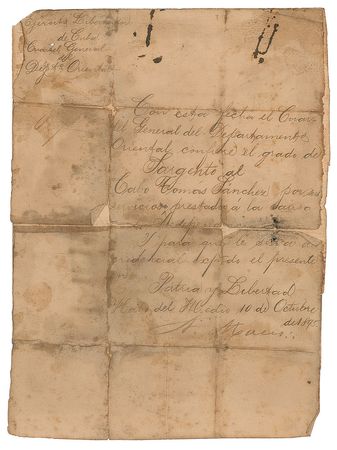 Ejército Libertador
de Cuba
Cuartel General
del
Depto. Oriental
Con esta fecha el Cuar-
tel General del Departamento
Oriental confiere el grado de
Sargento al
Cabo Tomas Sánchez por sus
servicios prestados á la causa
Y para que le sirva de
credencial expido el presente
Patria y Libertad
del Medio 10 de Octubre
de 1895